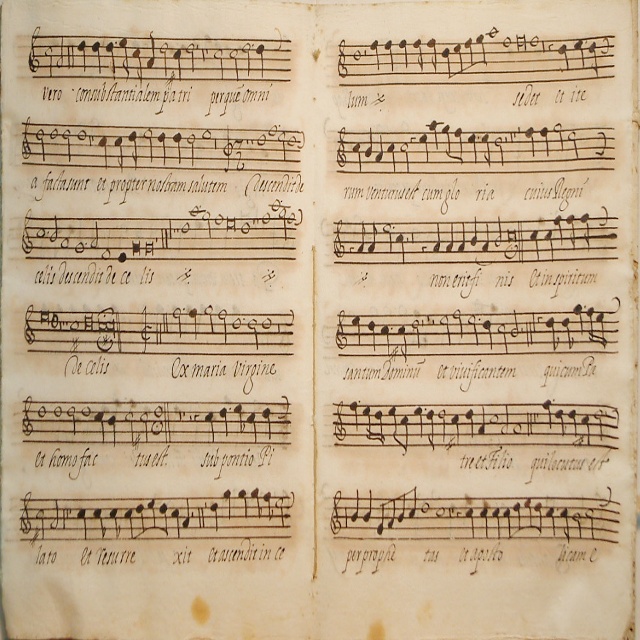 vero consubstantialem patri per que omni
a facta sunt et propter nostram salutem Descendit de
celis descendit de ce lis
De Celis Ex maria Virgine
et homo fac tus est sub pontio Pi
lato et Resurre xit et ascendit in ce
lum sedet et ite
rum venturus est cum glo ria cuius Regni
non erit fi nis Et in spiritum
sanctum Dominum et vivificantem qui cum Pa
tre et Filio qui locutus est
per prophe tas et aposto licam e